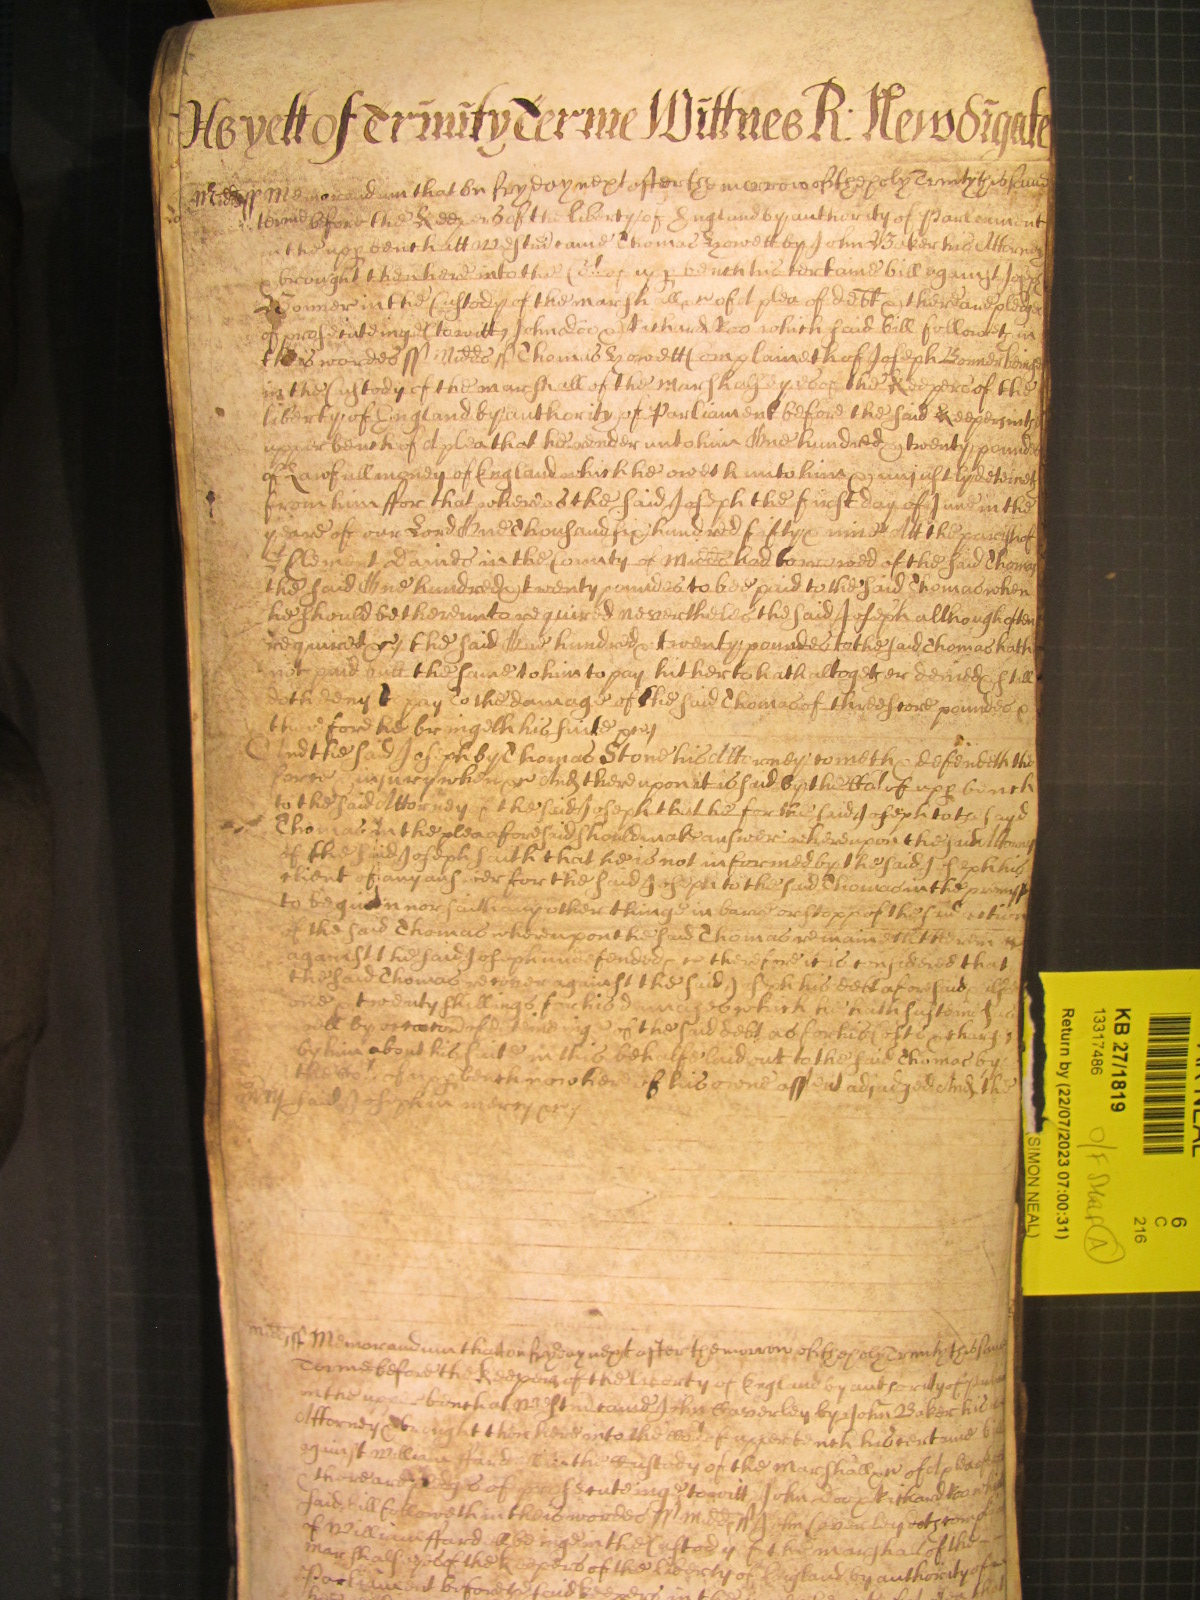 As yett of Trinity Terme Wittnes R: Newdigate
Midds ss Memorandum that on fryday next after the morrow of the holy Trinity this same
terme before the Keepers of the liberty of England by authority of Parleament
in the upp bench att Westm came Thomas Howett by John Baker his Attorney
& brought then here into the Court of upp bench his certaine bill against Joseph
Bonner in the Custody of the marshall &c of a plea of debt & there are pledges
of prosecuteinge (towitt) John doo & Richard Roo which said bill followeth in
theis wordes ss Midds ss Thomas Howett Complaineth of Joseph Bonner being
in the Custody of the marshall of the Marshalseyes of the Keepers of the
liberty of England by authority of Parliament before the said Keepers in the
upper bench of a plea that he render unto him One hundred & twenty pounds
of Lawfull money of England which he oweth unto him & unjustly deteineth
from him ffor that whereas the said Joseph the first day of June in the
yeare of our Lord One Thousand six hundred fifty & nine Att the parish of
Clement Danes in the County of Midds had borrowed of the said Thomas
the said One hundred & twenty poundes to bee paid to the said Thomas when
he should be thereunto required Neverthelesse the said Joseph although often
required &c the said One hundred & twenty poundes to the said Thomas hath
not paid but the same to him to pay hitherto hath altogether denied & still
doth deny to pay To the damage of the said Thomas of threescore poundes &
therefore he bringeth his suite &c
And the said Joseph by Thomas Stone his Attorney cometh & defendeth the
force & injury when &c And thereupon it is said by the Court of upp bench
to the said Attorney of the said Joseph that he for the said Joseph to the said
Thomas in the plea aforesaid should make answer whereupon the said Attorney
of the said Joseph saith that he is not informed by the said Joseph his
client of any answer for the said Joseph to the said Thomas in the
to be given nor saith any other thinge in barre or stopp of the said action
of the said Thomas whereupon the said Thomas remaineth therein
against the said Joseph undefended &c therefore it is considered that
the said Thomas recover against the said Joseph his debt aforesaid
one & twenty shillings for his damages which he hath susteined
well by occasion of deteineinge of the said debt as for his Costs & charges
by him about his suite in this behalfe laid out to the said Thomas by
the Court of upp bench now here of his owne assent adjudged And the
mercy said Joseph in mercy &c
Midds ss Memorandum that on fryday next after the morrow of the holy Trinity this same
Terme before the Keepers of the liberty of England by authority of
in the upper bench at Westm came John Caverley by John Baker his
Attorney & brought then here into the Court of upper bench his certaine bill
against William in the Custody of the Marshall &c of a plea
there are pledges of prosecuteinge towitt John Doo & Richard Roo which
said bill followeth in theis wordes ss Midds ss John Caverley
of William beinge in the Custody of the marshall of the
marshalseyes of the Keepers of the liberty of England by authority of
Parliament before the said keepers in the
KB 27/1819
13317486
Return by (22/07/2023 07:00:31)
(SIMON NEAL)
6
C
216